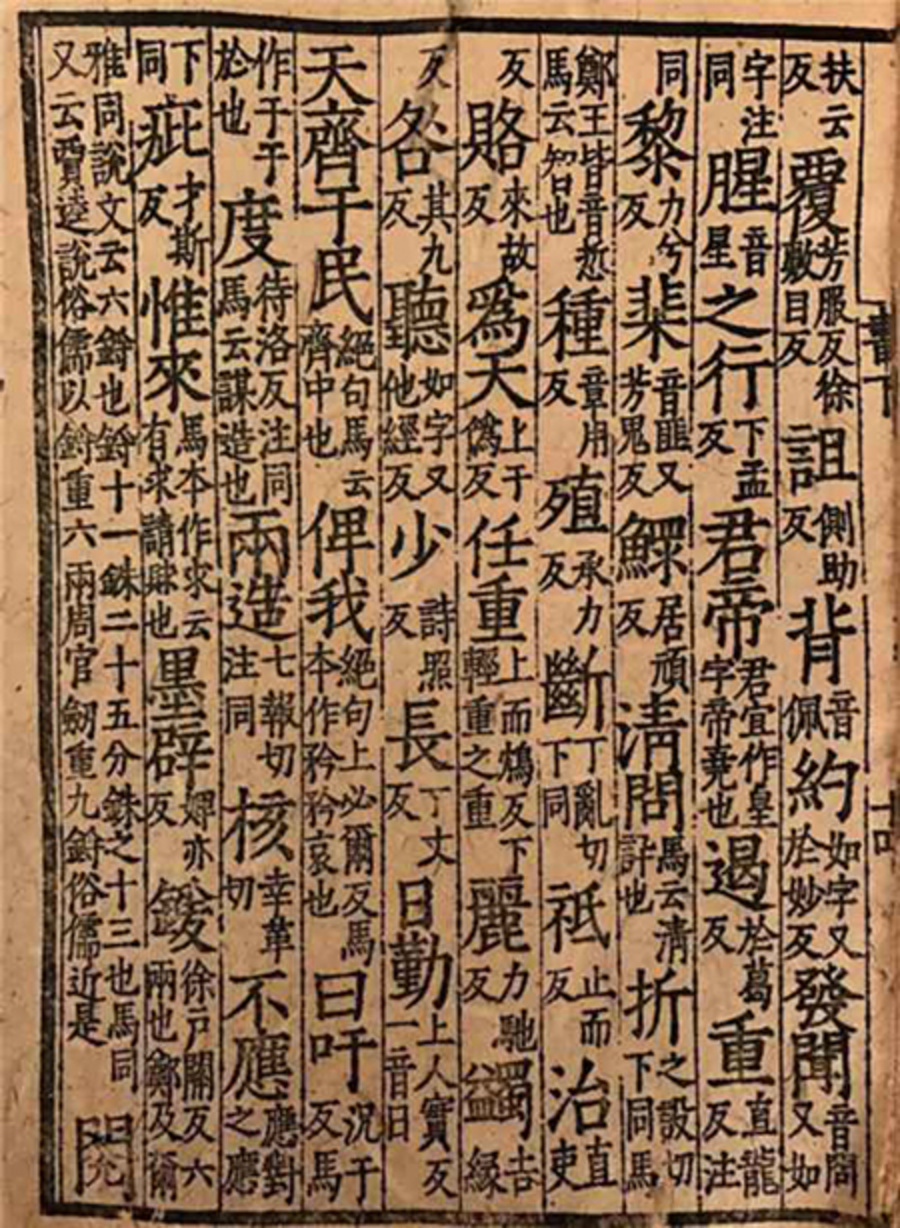 扶云反覆芳服反徐敷目反詛側助反背音佩約如字又於妙反發聞音問又如
字注同腥音星之行下孟反君帝君宜作皇字帝堯也遏於葛反重直龍反注
同黎力兮反棐音匪又芳鬼反鰥居頑反清問馬云清訊也折之設切下同馬
鄭王皆音悊馬云智也種章用反殖承力反斷丁亂切下同祗止而反治直吏
反賂來故反爲天上于偽反任重上而鴆反下輕重之重麗力馳反蠲吉緣
反咎其九反聽如字又他經反少詩照反長丁丈反日勤上人實反一音曰
天齊于民絕句馬云齊中也俾我絕句上必爾反馬本作矜矜哀也曰吁況于反馬
作于于於也度待洛反注同馬云謀造也兩造七報切注同核幸革切不應應對之應
下同疵才斯反惟來馬本作求云有求請賕也墨辟婢亦反鍰徐戶關反六兩也鄭及爾
雅同說文云六鋝也鋝十一銖二十五分銖之十三也馬同又云賈逵說俗儒以鋝重六兩周官劒重九鋝俗儒近是閱